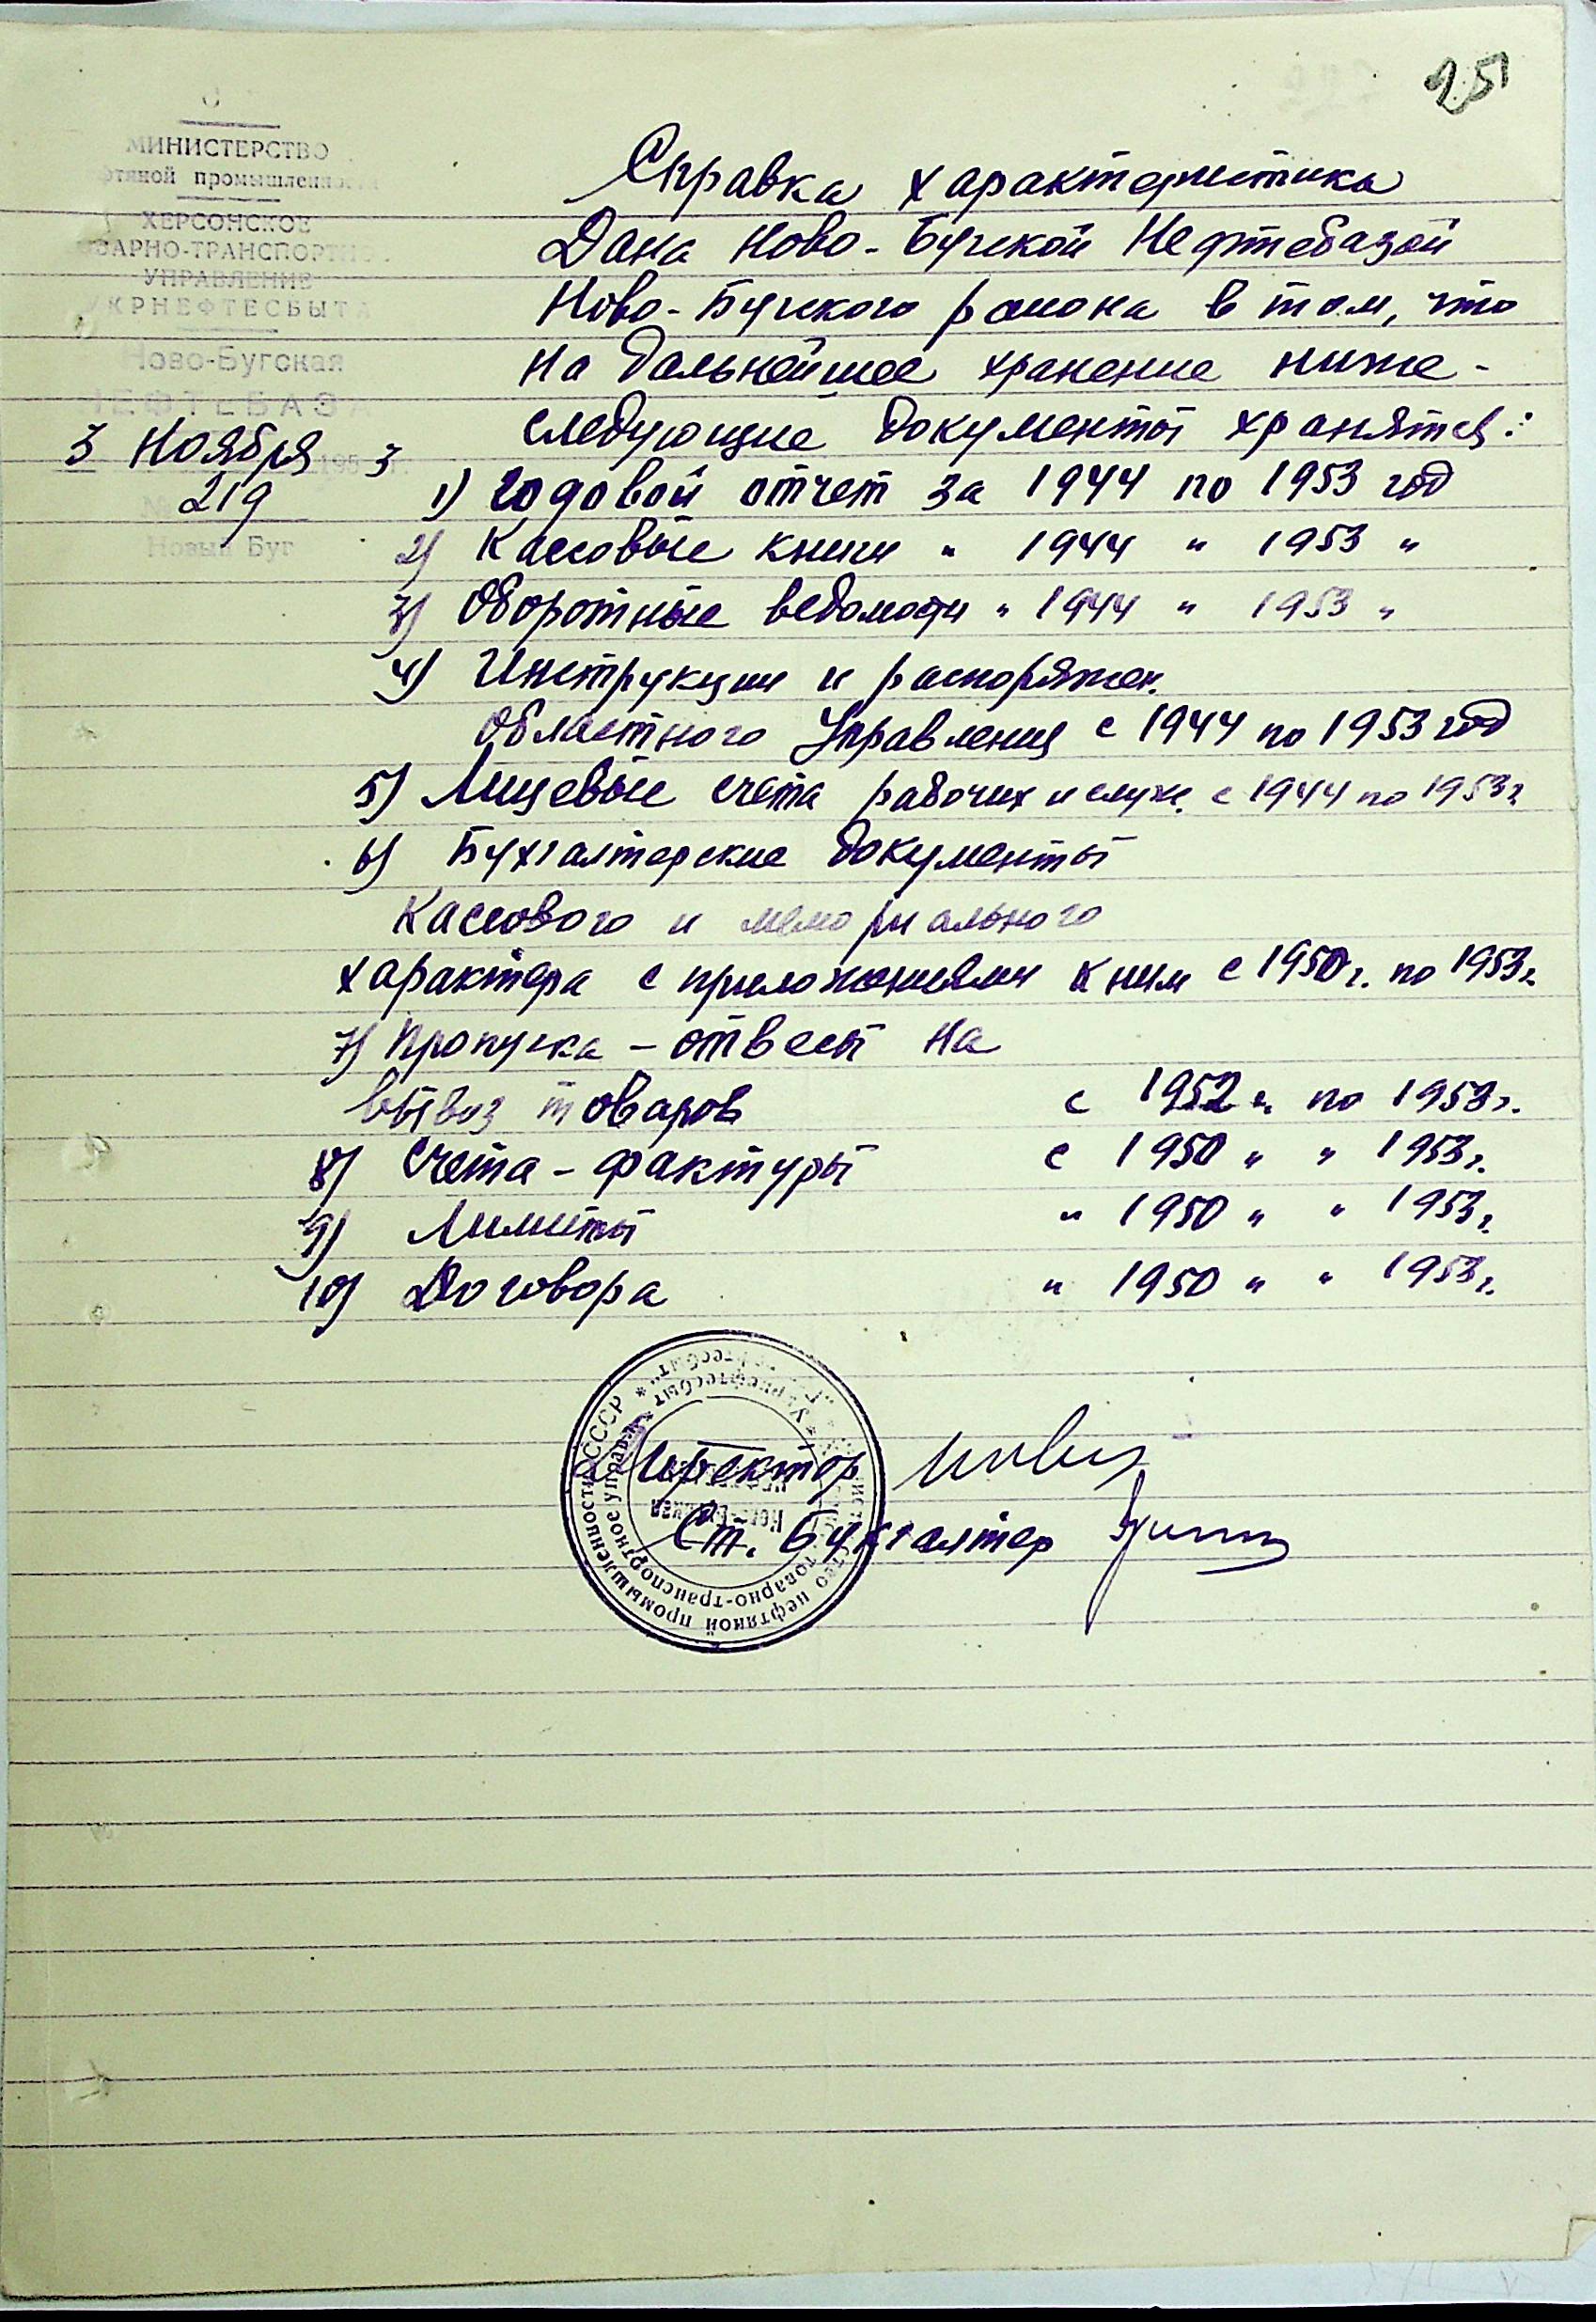 25
МИНИСТЕРСТВО
фтяной промышленности
ХЕРСОНСКОЕ
ВАРНО-ТРАНСПОРТНОЕ
УПРАВЛЕНИЕ
УКРНЕФТЕСБЫТА
Ново-Бугская
НЕФТЕБАЗА
3 Ноября 195 3
219
Новый Буг
Справка характеристика
Дана Ново-Бугской Нефтебазой
Ново-Бугского района в том, что
на дальнейшее хранение ниже-
следующие документы хранятся:
1) Годовой отчет за 1944 по 1953 год
2) Кассовые книги " 1944 " 1953 "
3) Оборотные ведомости " 1944 " 1953 "
4) Инструкции и распоряжен.
Областного Управления с 1944 по 1953 год
5) Лицевые счета рабочих и служ. с 1944 по 1953 г
6) Бухгалтерские документы
Кассового и мемориального
характера с приложениями к ним с 1950 г. по 1953 г.
7) Пропуска - отвесы на
вывоз товаров с 1952 г. по 1953 г.
8) Счета-фактуры с 1950 " " 1953 г.
9) Лимиты " 1950 " " 1953 г.
10) Договора " 1950 " " 1953 г.
Директор
Ст. Бухгалтер
нефтяной промышленности СССР
товарно-транспортное управлен. Укрнефтесбыт